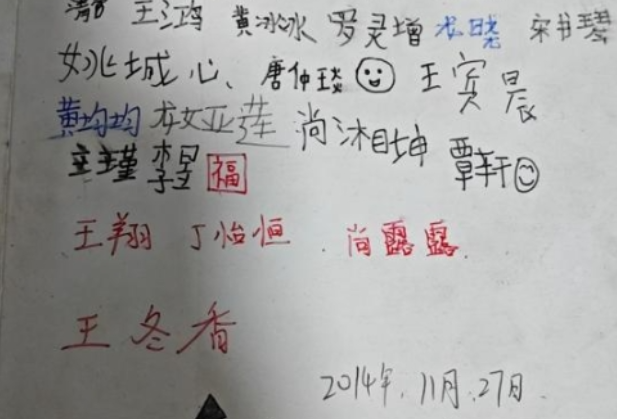 王江鸿 黄冰冰 罗灵增 尤晓 宋书琴
姚城心、唐仲琰 王宾晨
黄均均 龙女亚莲 尚沐坤 覃轩
李昱 福
王翔 丁怡恒 尚露露
王冬香
2014年.11月.27日.